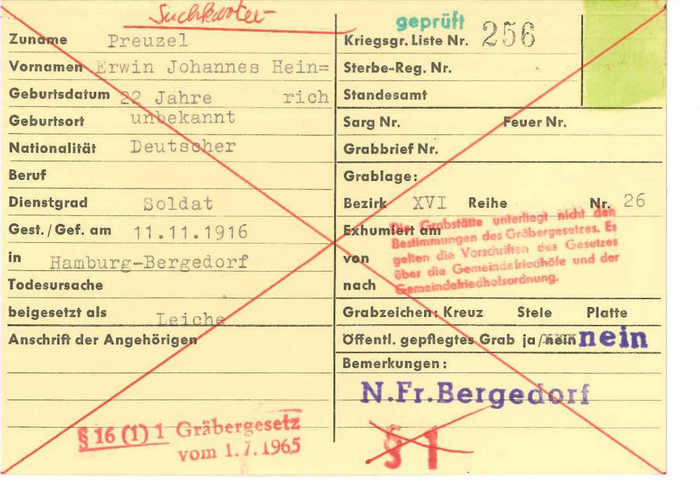 Suchkartei
geprüft
Zuname Preuzel
Vornamen Erwin Johannes Hein=
Geburtsdatum 22 Jahre rich
Geburtsort unbekannt
Nationalität Deutscher
Beruf
Dienstgrad Soldat
Gest./Gef. am 11.11.1916
in Hamburg-Bergedorf
Todesursache
beigesetzt als Leiche
Anschrift der Angehörigen
§ 16 (1) 1 Gräbergesetz
vom 1.7.1965
Kriegsgr. Liste Nr. 256
Sterbe-Reg. Nr.
Standesamt
Sarg Nr. Feuer Nr.
Grabbrief Nr.
Grablage:
Bezirk XVI Reihe Nr. 26
Exhumiert am
von
nach
Die Grabstätte unterliegt nicht den
Bestimmungen des Gräbergesetzes. Es
gelten die Vorschriften des Gesetzes
über die Gemeindefriedhöfe und der
Gemeindefriedhofsordnung.
Grabzeichen: Kreuz Stele Platte
Öffentl. gepflegtes Grab ja/nein nein
Bemerkungen:
N.Fr.Bergedorf
§ 1